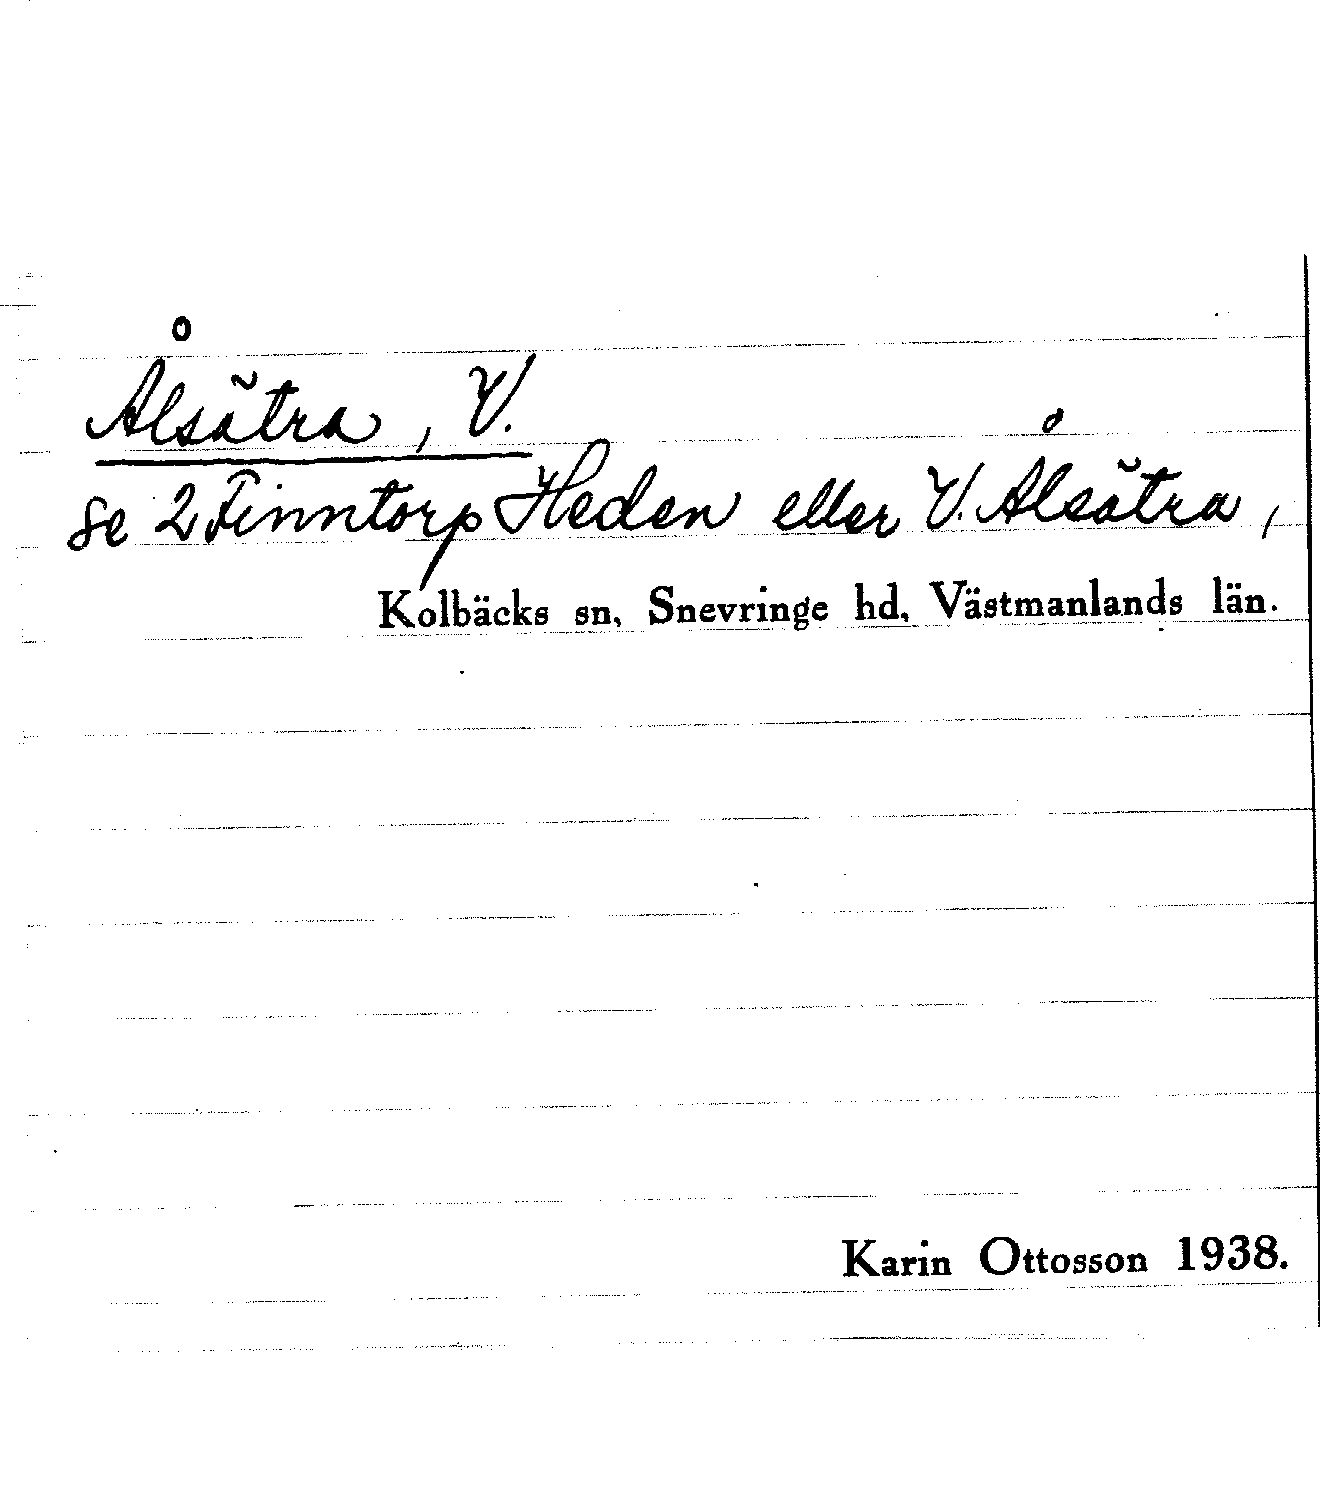 Ålsätra, V.
se 2 Finntorp Heden eller V. Ålsätra,
Kolbäcks sn, Snevringe hd, Västmanlands län.
Karin Ottosson 1938.